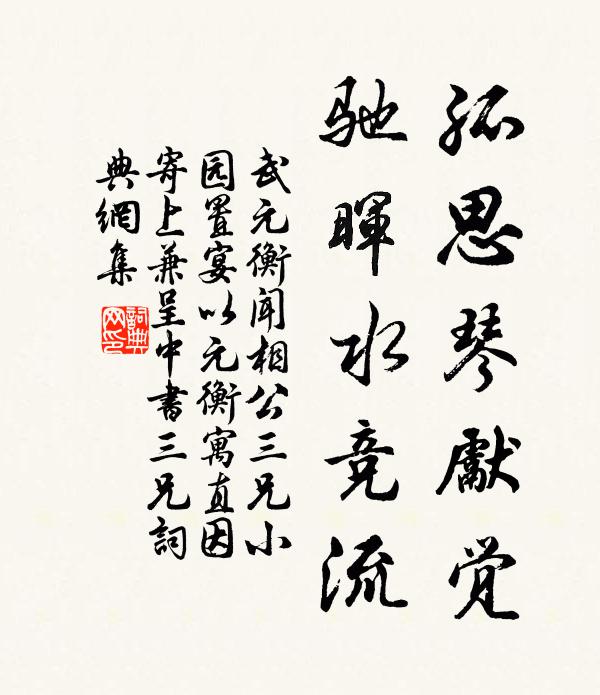 孤思琴獻觉
驰暉水竞流
武元衡闻相公三兄小
园置宴以元衡寓直因
寄上兼呈中書三兄詞
典網集
詞典网印